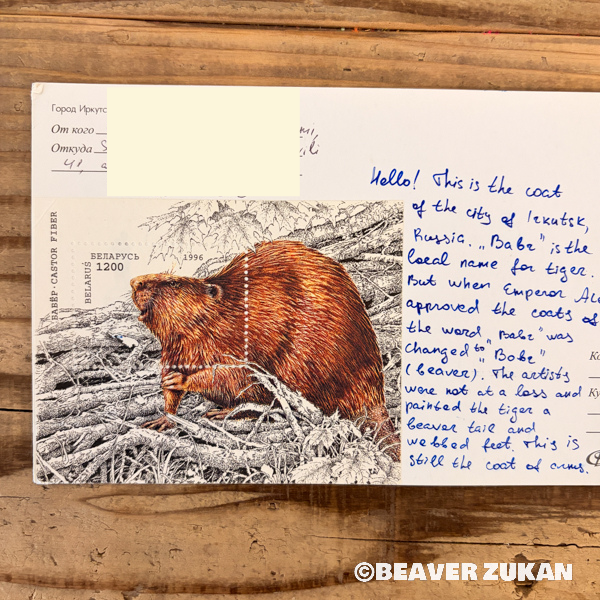 Город Иркутс
От кого
Откуда
БАБЁР·CASTOR FIBER
BELARUS
БЕЛАРУСЬ
1200
1996
Hello! This is the coat
of the city of Irkutsk,
Russia. „Babr" is the
local name for tiger.
But when Emperor Ale
approved the coats of
the word „Babr" was
changed to „Bobr"
(beaver). The artists
were not at a loss and
painted the tiger a
beaver tail and
webbed feet. This is
still the coat of arms.
Ко
Ку
©BEAVER ZUKAN